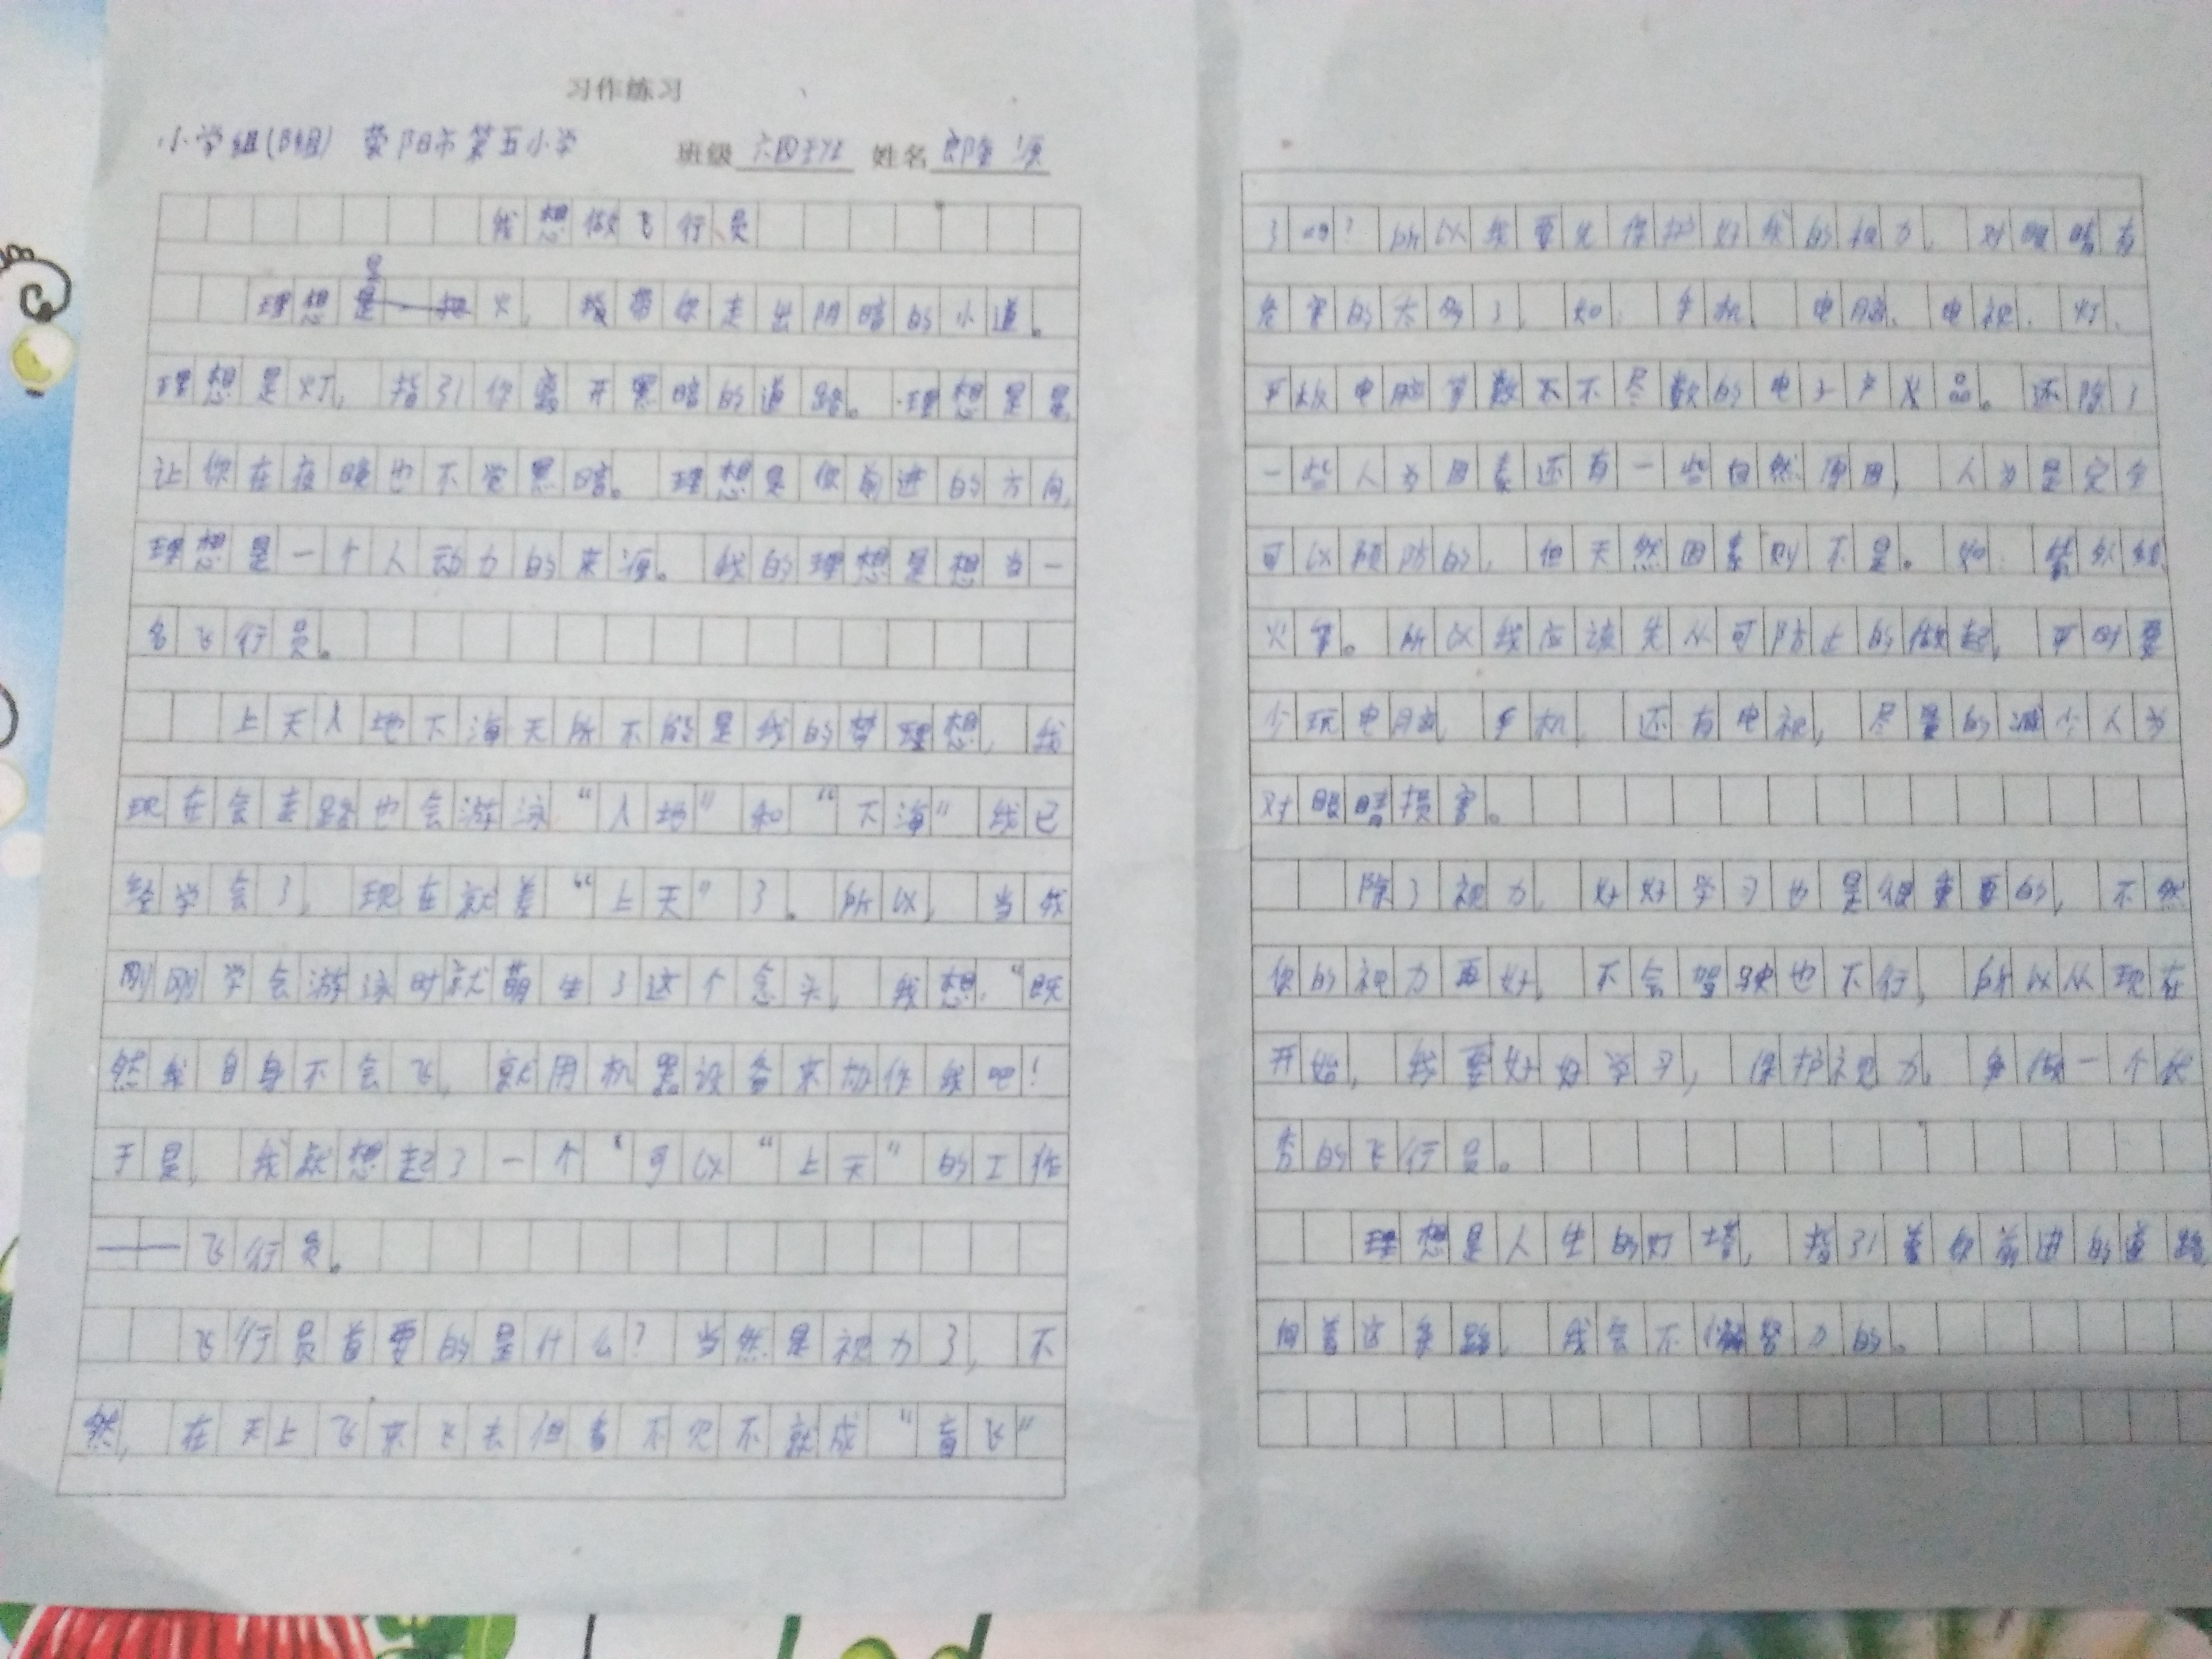 习作练习
小学组(B组) 荥阳市第五小学 班级 六四班 姓名
我想做飞行员
理想是火，带你走出阴暗的小道。
理想是灯，指引你离开黑暗的道路。理想是星
让你在夜晚也不觉黑暗。理想是你前进的方向，
理想是一个人动力的来源。我的理想是想当一
名飞行员。
上天入地下海无所不能是我的梦理想，我
现在会走路也会游泳“入地”和“下海”我已
经学会了，现在就差“上天”了。所以，当我
刚刚学会游泳时就萌生了这个念头，我想：“既
然我自身不会飞，就用机器设备来协作我吧！
于是，我就想起了一个“可以“上天”的工作
——飞行员。
飞行员首要的是什么？当然是视力了，不
然，在天上飞来飞去但看不见不就成“盲飞”
了吗？所以我要先保护好我的视力，对眼睛有
危害的太多了，如：手机、电脑、电视、灯、
平板电脑等数不不尽数的电子产品。还除了
一些人为因素还有一些自然原因，人为是完全
可以预防的，但天然因素则不是。如：紫外线
火等。所以我应该先从可防止的做起，平时要
少玩电脑，手机，还有电视，尽量的减少人为
对眼睛损害。
除了视力，好好学习也是很重要的，不然
你的视力再好，不会驾驶也不行，所以从现在
开始，我要好好学习，保护视力，争做一个优
秀的飞行员。
理想是人生的灯塔，指引着你前进的道路，
向着这条路，我会不懈努力的。